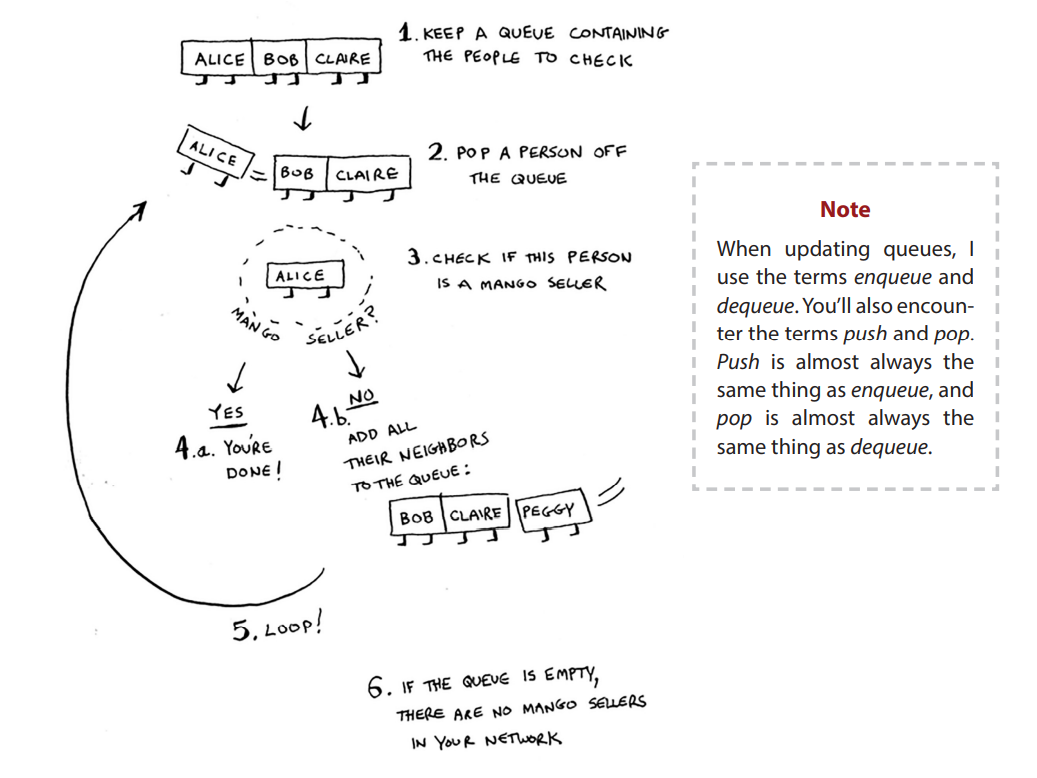 ALICE BOB CLAIRE
1. KEEP A QUEUE CONTAINING
THE PEOPLE TO CHECK
ALICE = BOB CLAIRE
2. POP A PERSON OFF
THE QUEUE
ALICE
MANGO SELLER?
3. CHECK IF THIS PERSON
IS A MANGO SELLER
YES
4.a. YOU'RE
DONE!
NO
4.b.
ADD ALL
THEIR NEIGHBORS
TO THE QUEUE:
BOB CLAIRE PEGGY
5. LOOP!
6. IF THE QUEUE IS EMPTY,
THERE ARE NO MANGO SELLERS
IN YOUR NETWORK
Note
When updating queues, I
use the terms enqueue and
dequeue. You'll also encoun-
ter the terms push and pop.
Push is almost always the
same thing as enqueue, and
pop is almost always the
same thing as dequeue.